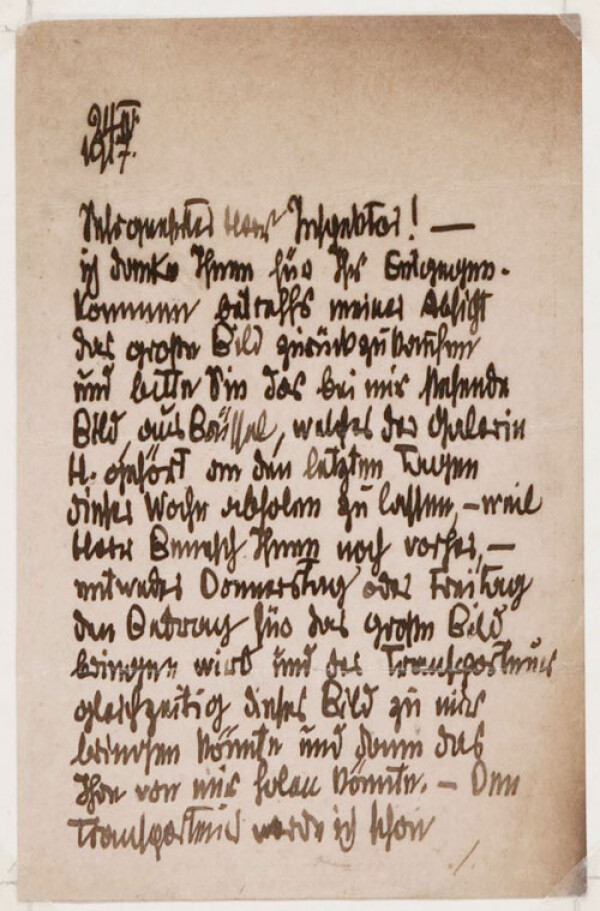 24. IV.
1917.
Sehrgeehrter Herr Inspektor! —
ich danke Ihnen für Ihr Entgegen-
kommen betreffs meiner Absicht
das große Bild zurückzukaufen
und bitte Sie das bei mir stehende
Bild, aus Brüssel, welches der Galerie
H. gehört an den letzten Tagen
dieser Woche abholen zu lassen, – weil
Herr Benesch Ihnen noch vorher, —
entweder Donnerstag oder Freitag
den Betrag für das große Bild
bringen wird und der Transporteur
gleichzeitig dieses Bild zu mir
bringen könnte und dann das
Ihre von mir holen könnte. – Den
Transporteur werde ich schon